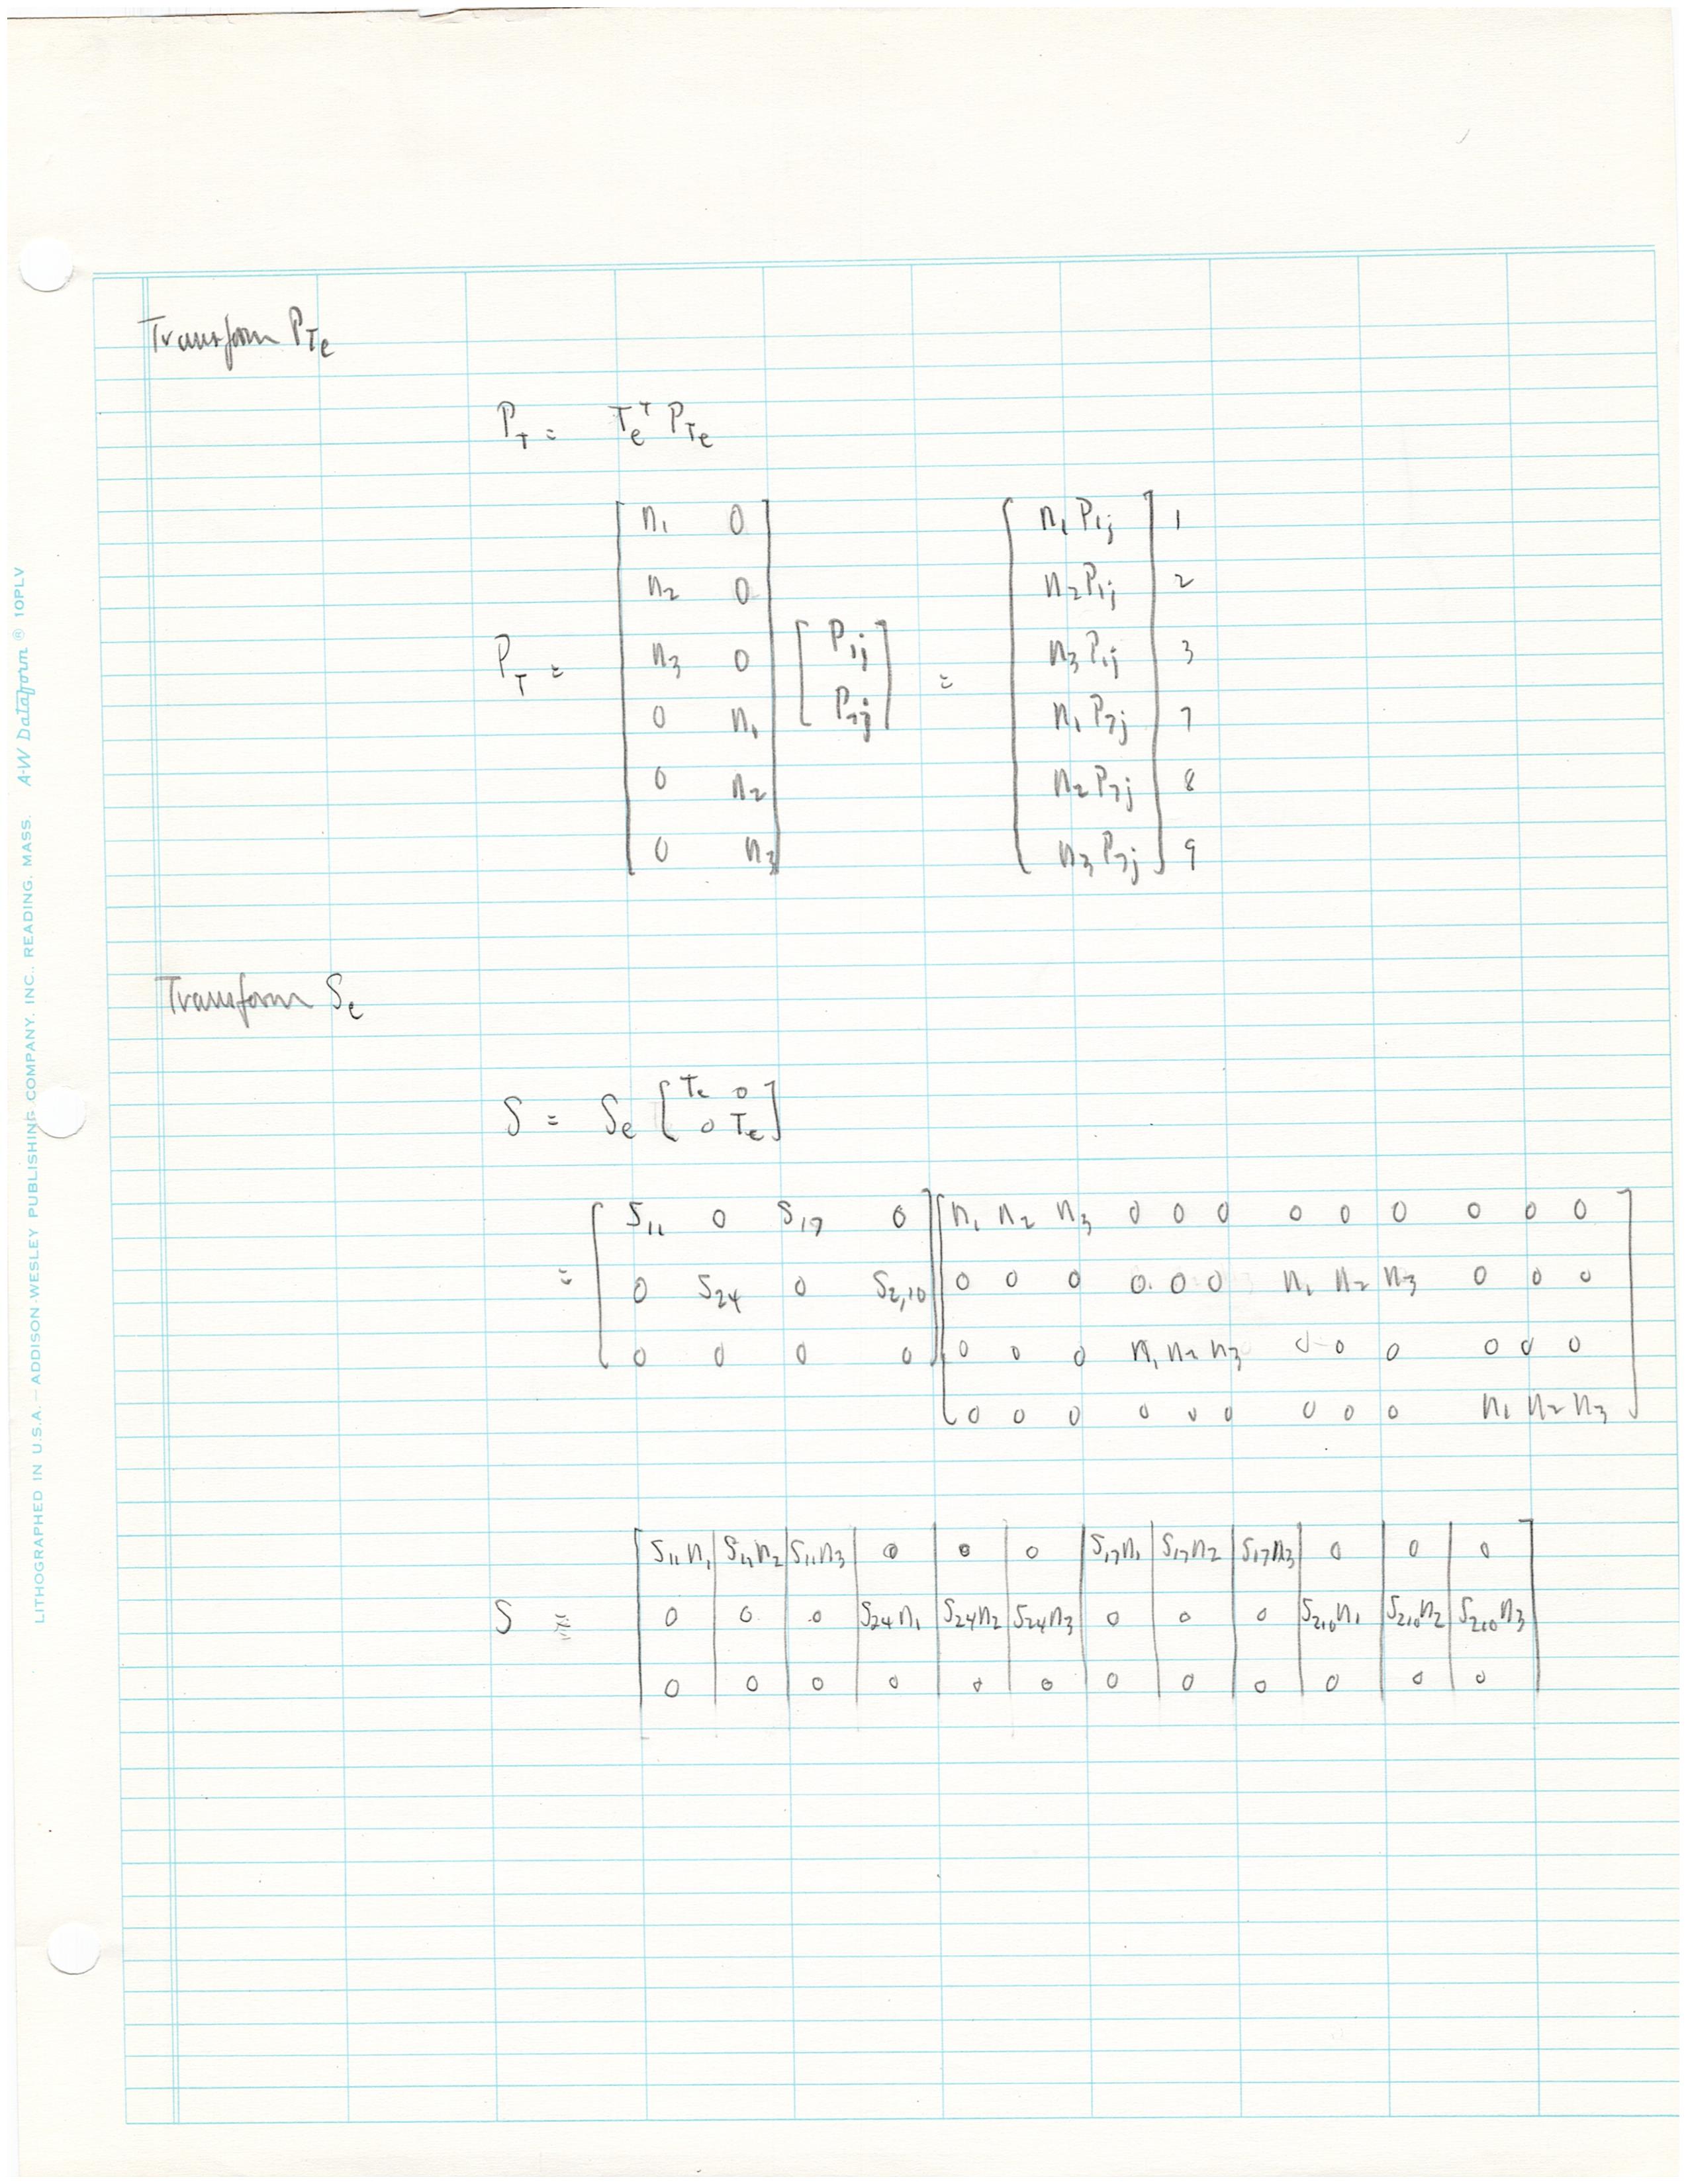 Transform P_Te
P_T = T_e^T P_Te
P_T = [ n1 0 ; n2 0 ; n3 0 ; 0 n1 ; 0 n2 ; 0 n3 ] [ P1j ; P7j ] = [ n1 P1j ; n2 P1j ; n3 P1j ; n1 P7j ; n2 P7j ; n3 P7j ] 1 2 3 7 8 9
Transform S_e
S = S_e [ T_e 0 ; 0 T_e ]
= [ S11 0 S17 0 ; 0 S24 0 S2,10 ; 0 0 0 0 ] [ n1 n2 n3 0 0 0 0 0 0 0 0 0 ; 0 0 0 0 0 0 n1 n2 n3 0 0 0 ; 0 0 0 n1 n2 n3 0 0 0 0 0 0 ; 0 0 0 0 0 0 0 0 0 n1 n2 n3 ]
S = [ S11n1 | S11n2 | S11n3 | 0 | 0 | 0 | S17n1 | S17n2 | S17n3 | 0 | 0 | 0 ]
0 | 0 | 0 | S24n1 | S24n2 | S24n3 | 0 | 0 | 0 | S210n1 | S210n2 | S210n3
0 | 0 | 0 | 0 | 0 | 0 | 0 | 0 | 0 | 0 | 0 | 0
LITHOGRAPHED IN U.S.A. — ADDISON-WESLEY PUBLISHING COMPANY, INC., READING, MASS. A-W Dataform ® 10PLV